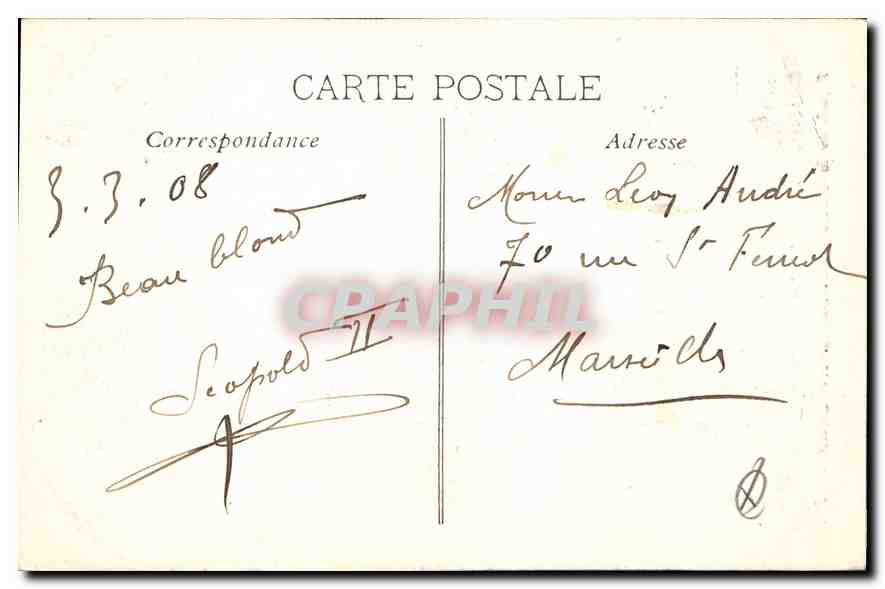 CARTE POSTALE
Correspondance
3.3.08
Beau blond
Leopold II
Adresse
Levy André
70 rue St Ferréol
Marseille
CPAPHIL